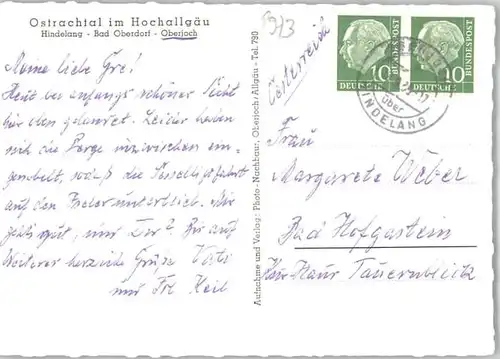 Ostrachtal im Hochallgäu
Hindelang - Bad Oberdorf - Oberjoch
Meine liebe Gre!
Heut bei anfangs schöner Sicht
hier oben gelandet. Leider haben
sich die Berge inzwischen ein-
genebelt, sodaß die Sesselliftfahrt
auf den unterblieb. Mir
geht's gut, und Dir? Bis auf
Weiteres herzliche Grüße
und Frl. Keil
Aufnahme und Verlag: Photo-Nachbaur, Oberjoch/Allgäu - Tel. 790
Österreich
10 10
DEUTSCHE BUNDESPOST
DEUTSCHE BUNDESPOST
über
HINDELANG
Frau
Margarete Weber
Bad Hofgastein
Kur-Haus Tauernblick